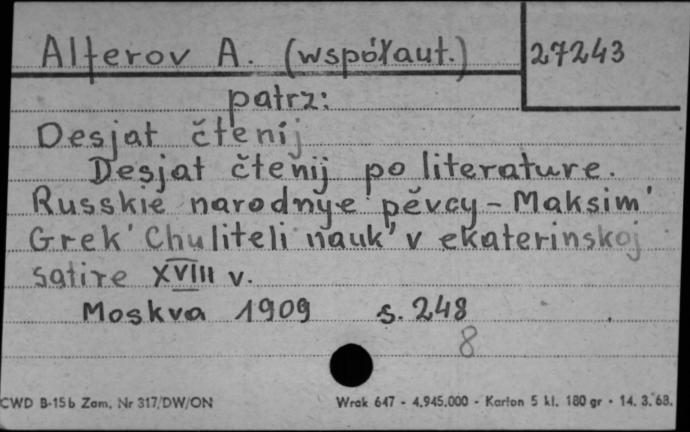 Alferov A. (współaut.) 27243
patrz:
Desjat čtenij
Desjat čtenij po literature.
Russkie narodnye pěvcy – Maksim'
Grek' Chuliteli nauk' v ekaterinskoj
satire XVIII v.
Moskva 1909 s. 248
8
CWD B-15b Zam. Nr 317/DW/ON Wrak 647 - 4.945.000 - Karton 5 kl. 180 gr - 14. 3. 68.